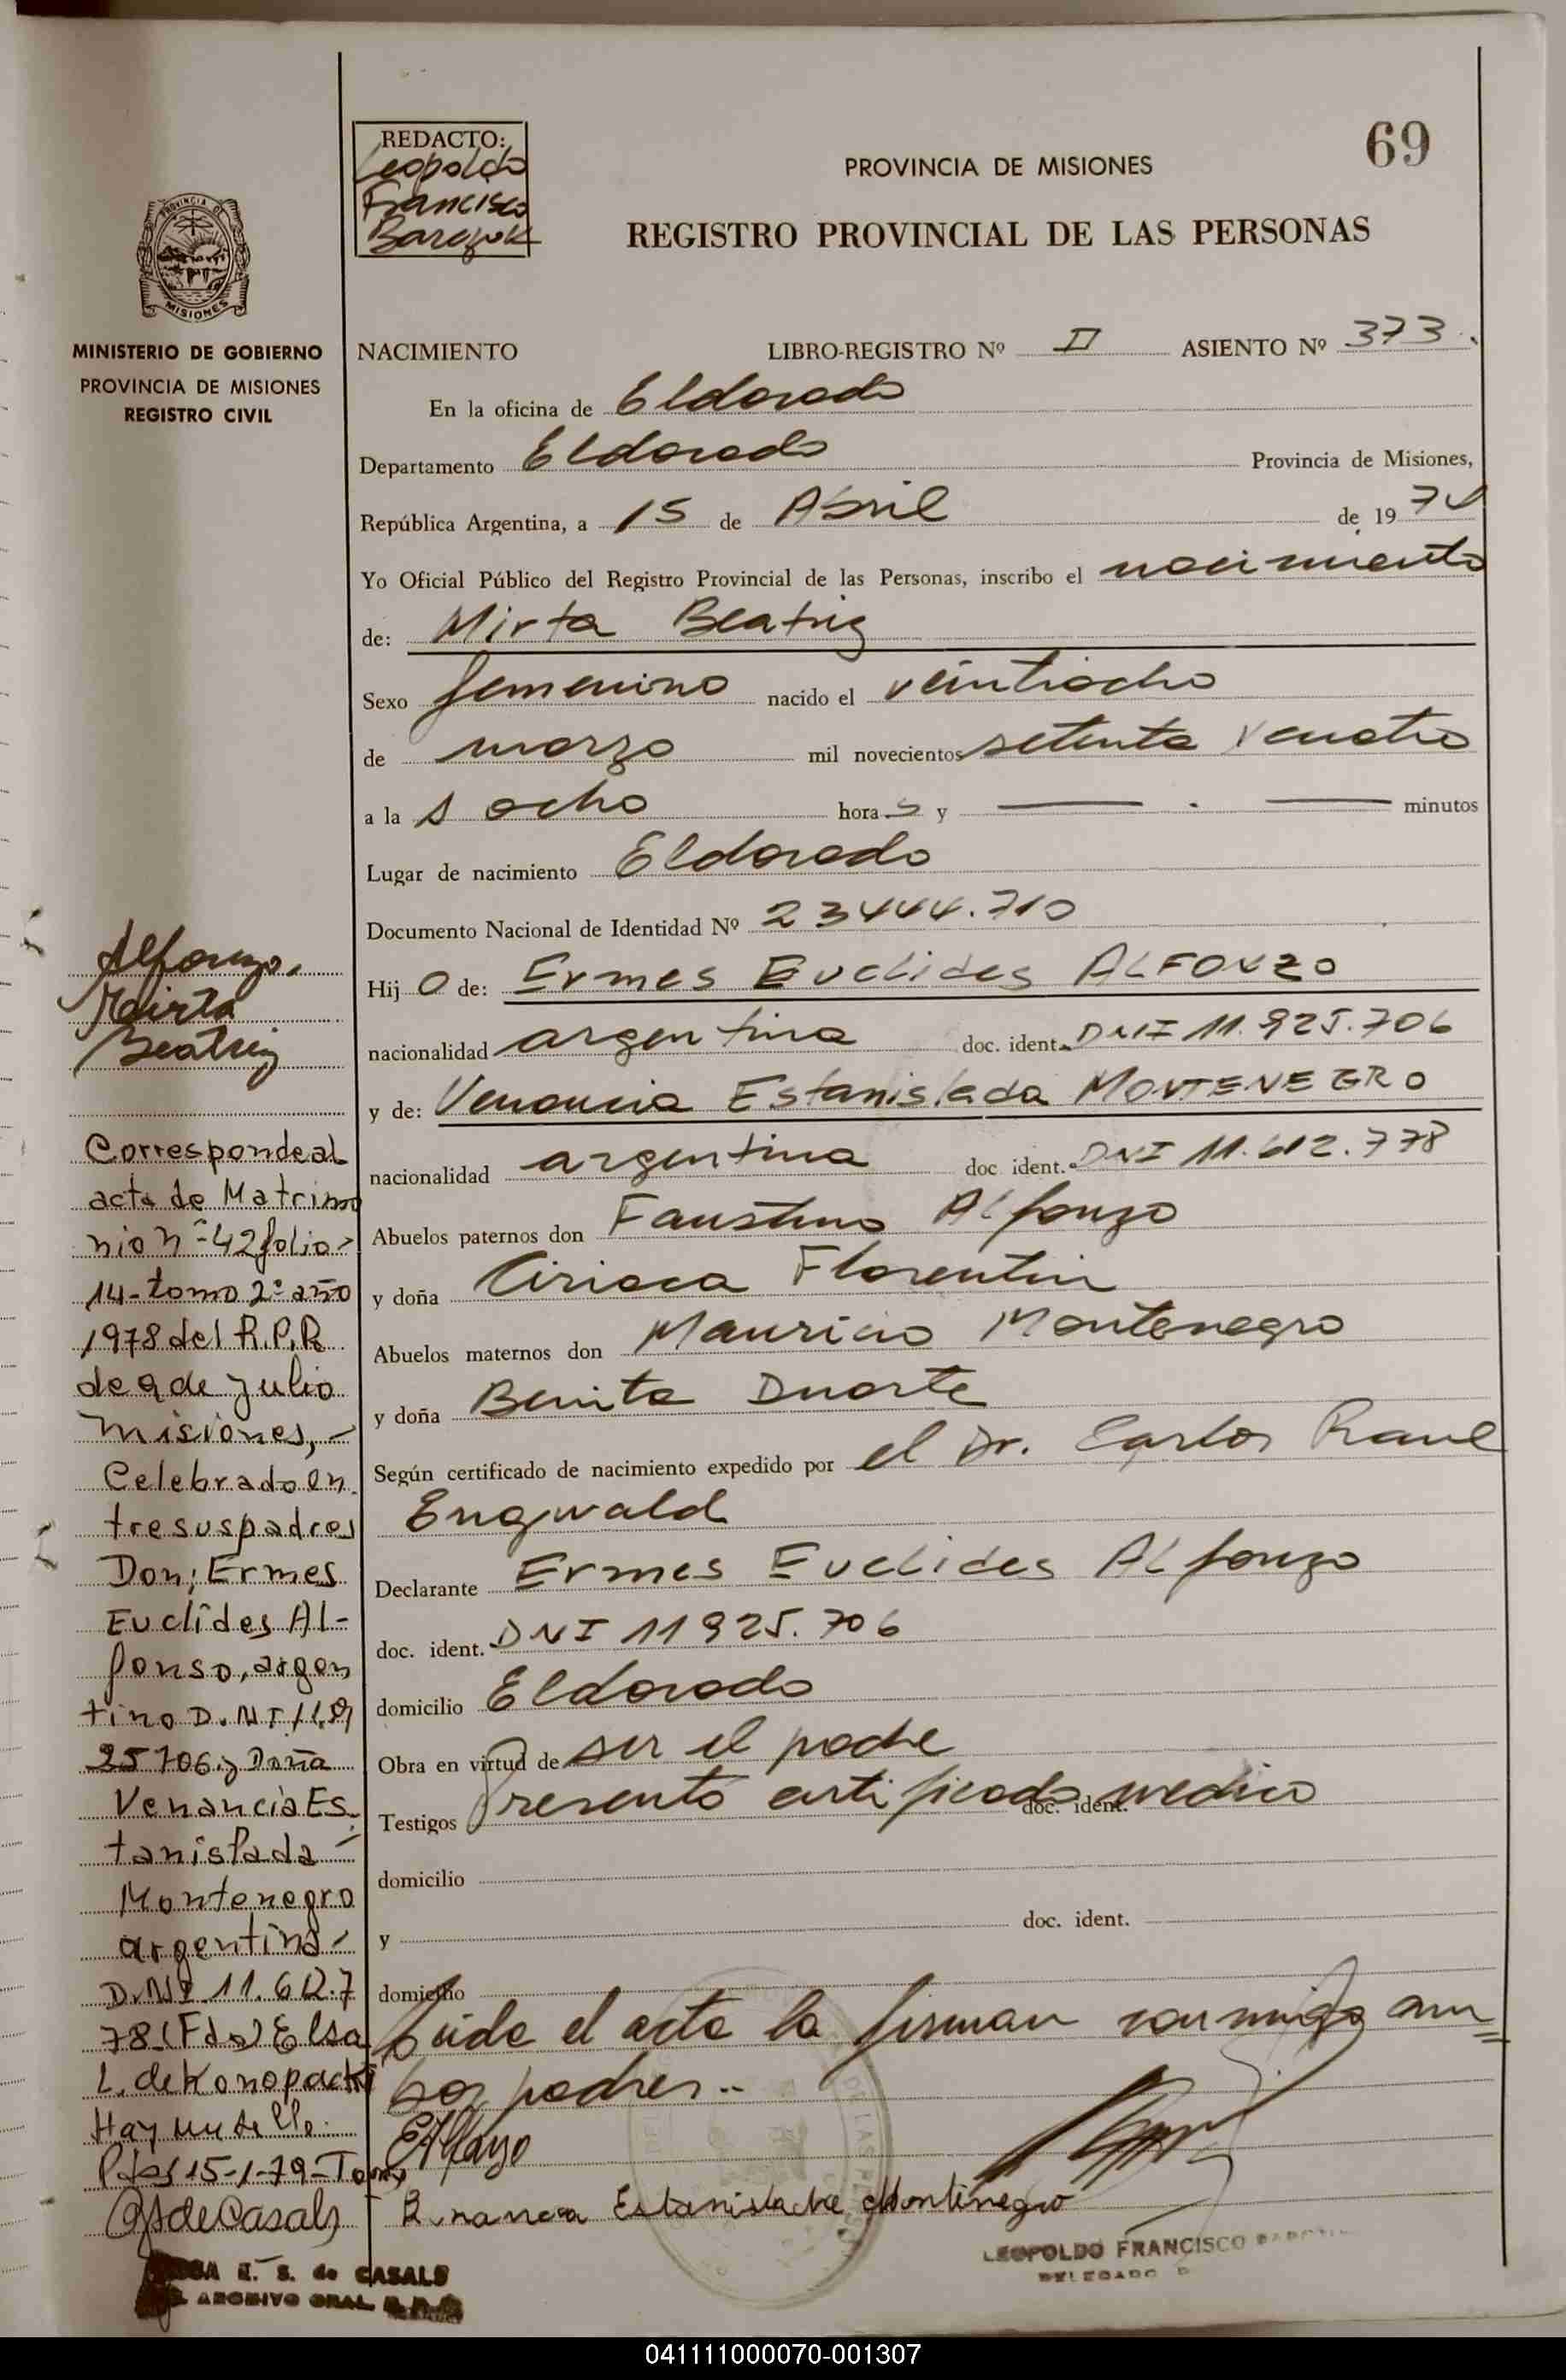 69
REDACTO:
Leopoldo
Francisco
PROVINCIA DE MISIONES
REGISTRO PROVINCIAL DE LAS PERSONAS
PROVINCIA DE
MISIONES
MINISTERIO DE GOBIERNO
PROVINCIA DE MISIONES
REGISTRO CIVIL
NACIMIENTO LIBRO-REGISTRO Nº II ASIENTO Nº 373.
En la oficina de Eldorado
Departamento Eldorado Provincia de Misiones,
República Argentina, a 15 de Abril de 1974
Yo Oficial Público del Registro Provincial de las Personas, inscribo el nacimiento
de: Mirta Beatriz
Sexo femenino nacido el veintiocho
de marzo mil novecientos setenta y cuatro
a la s ocho hora s y — . — minutos
Lugar de nacimiento Eldorado
Documento Nacional de Identidad Nº 23444.710
Hij O de: Ermes Euclides ALFONZO
nacionalidad argentina doc. ident. DNI 11.925.706
y de: Venancia Estanislada MONTENEGRO
nacionalidad argentina doc ident. DNI 11.612.778
Abuelos paternos don Faustino Alfonzo
y doña Ciriaca Florentin
Abuelos maternos don Mauricio Montenegro
y doña Benita Duarte
Según certificado de nacimiento expedido por el Dr. Carlos Raul
Engwald
Declarante Ermes Euclides Alfonzo
doc. ident. DNI 11925.706
domicilio Eldorado
Obra en virtud de ser el padre
Testigos Presentó certificado medico doc. ident.
domicilio
y doc. ident.
domicilio
Leida el acta la firman conmigo am
bos padres..
Estanislada Montenegro
LEOPOLDO FRANCISCO
DELEGADO
Alfonzo,
Mirta
Beatriz
Corresponde al
acta de Matrimo
nio nº 42 folio-
14-tomo 2º año
1978 del R.P.R
de 9 de Julio
Misiones,-
Celebrado en
tre sus padres
Don; Ermes
Euclides Al-
fonso, argen
tino D.NI 11.9
25706 y Doña
Venancia Es
tanislada-
Montenegro
argentina-
D.NI 11.612.7
78.(Fdo) Elsa
L. de Konopacki
Hay un sello.
Pdas 15-1-79-Tomo
de Casals
E. S. de CASALS
ARCHIVO GRAL R.P.P.
041111000070-001307